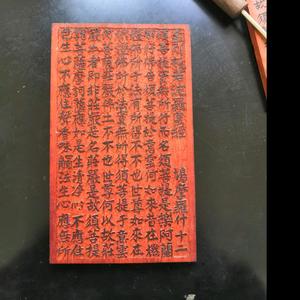 金剛般若波羅蜜經 鳩摩羅什 十二
以須菩提實無所行而名須菩提是樂阿蘭
那行佛告須菩提於意云何如來昔在燃
燈佛所於法有所得不不也世尊如來在
燃燈佛所於法實無所得須菩提於意云
何菩薩莊嚴佛土不不也世尊何以故莊
嚴佛土者即非莊嚴是名莊嚴是故須菩提
諸菩薩摩訶薩應如是生清淨心不應住
色生心不應住聲香味觸法生心應無所